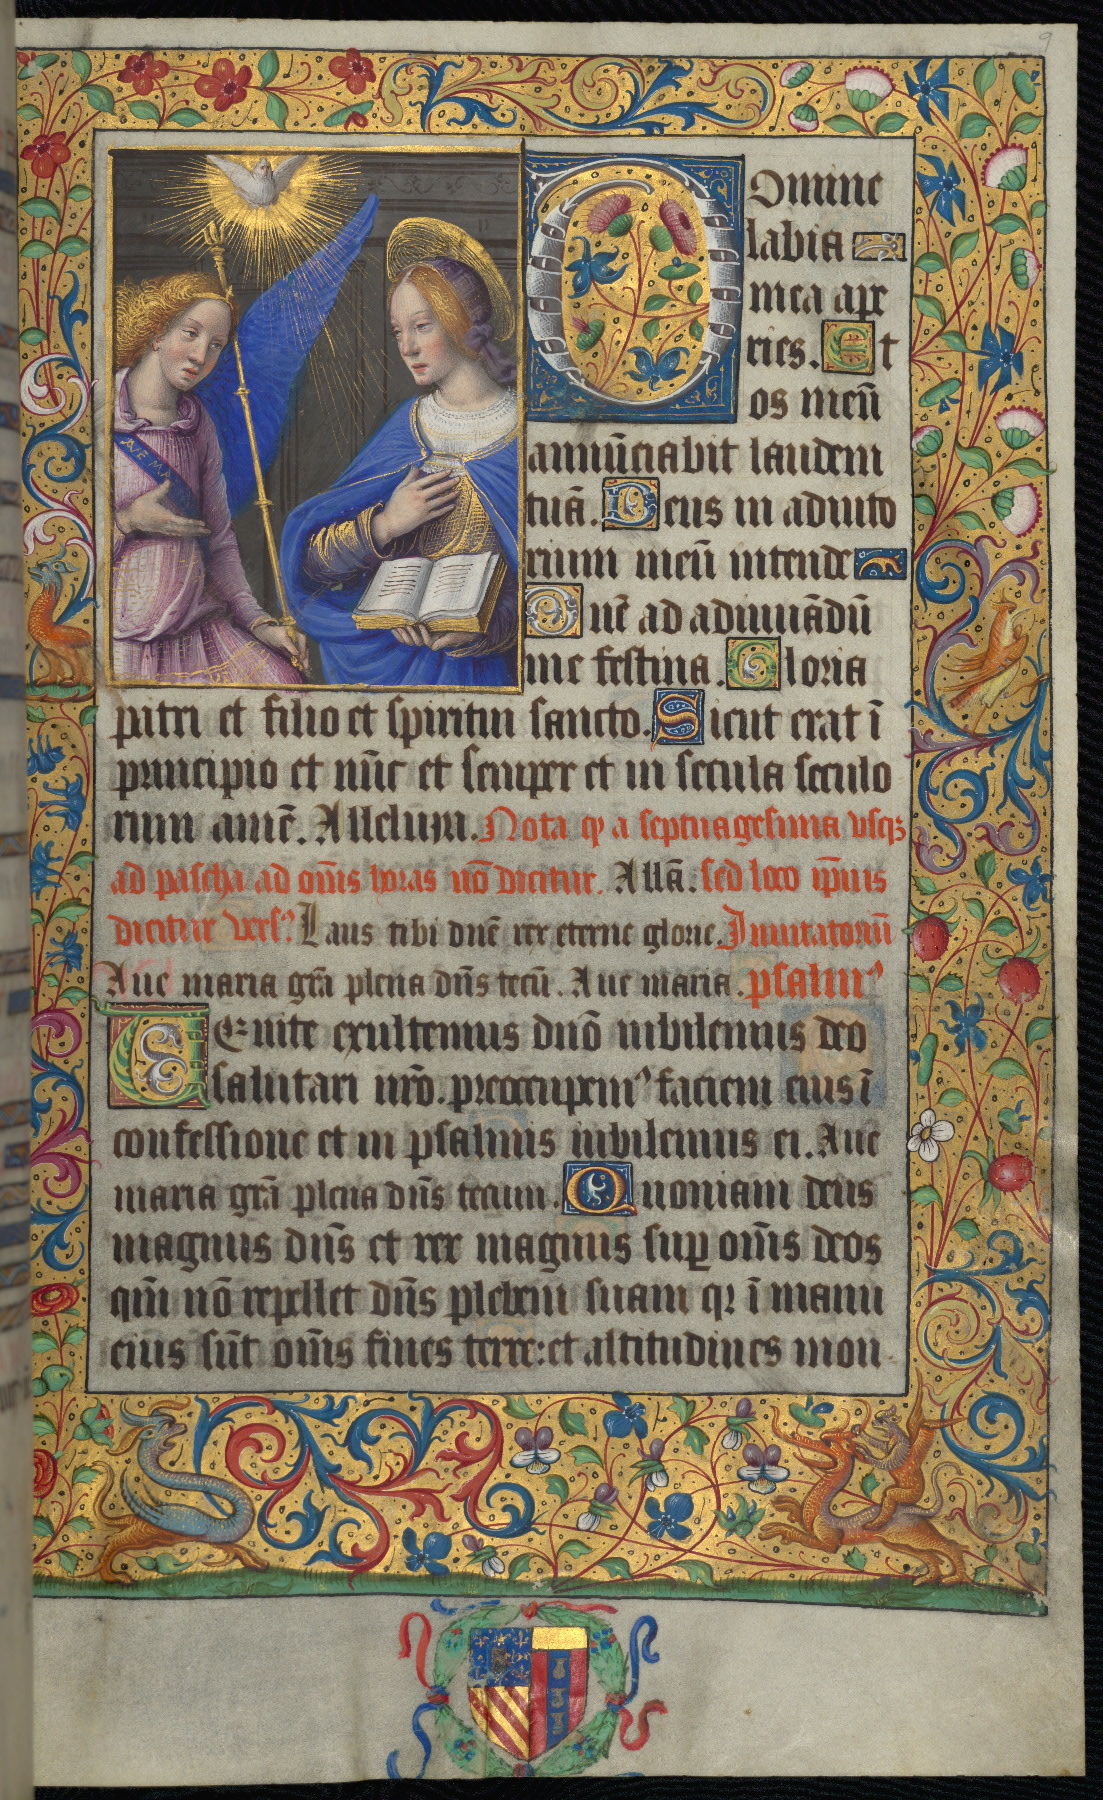 9
Domine
labia
mea ape
ries. Et
os meū
AVE MA
annūciabit laudem
tuā. Deus in adiuto
rium meū intende
Dñe ad adiuuādū
me festina. Gloria
patri et filio et spiritui sancto. Sicut erat ī
principio et nūc et semper et in secula seculo
rum amē. Alleluya. Nota qꝫ a septuagesima vsqꝫ
ad pascha ad om̄s horas nō dicitur. Allā. sed loco ip̄ius
dicitur versꝰ. Laus tibi dñe rex eterne glorie. Inuitatoriū
Aue maria grā plena dñs tecū. Aue maria. psalmꝰ
Uenite exultemus dño iubilemus deo
salutari nr̄o. preoccupemꝰ faciem eius ī
confessione et in psalmis iubilemus ei. Aue
maria grā plena dñs tecum. Quoniam deus
magnus dñs et rex magnus suꝑ om̄s deos
qm̄ nō repellet dñs plebem suam qꝛ ī manu
eius sūt om̄s fines terre: et altitudines mon